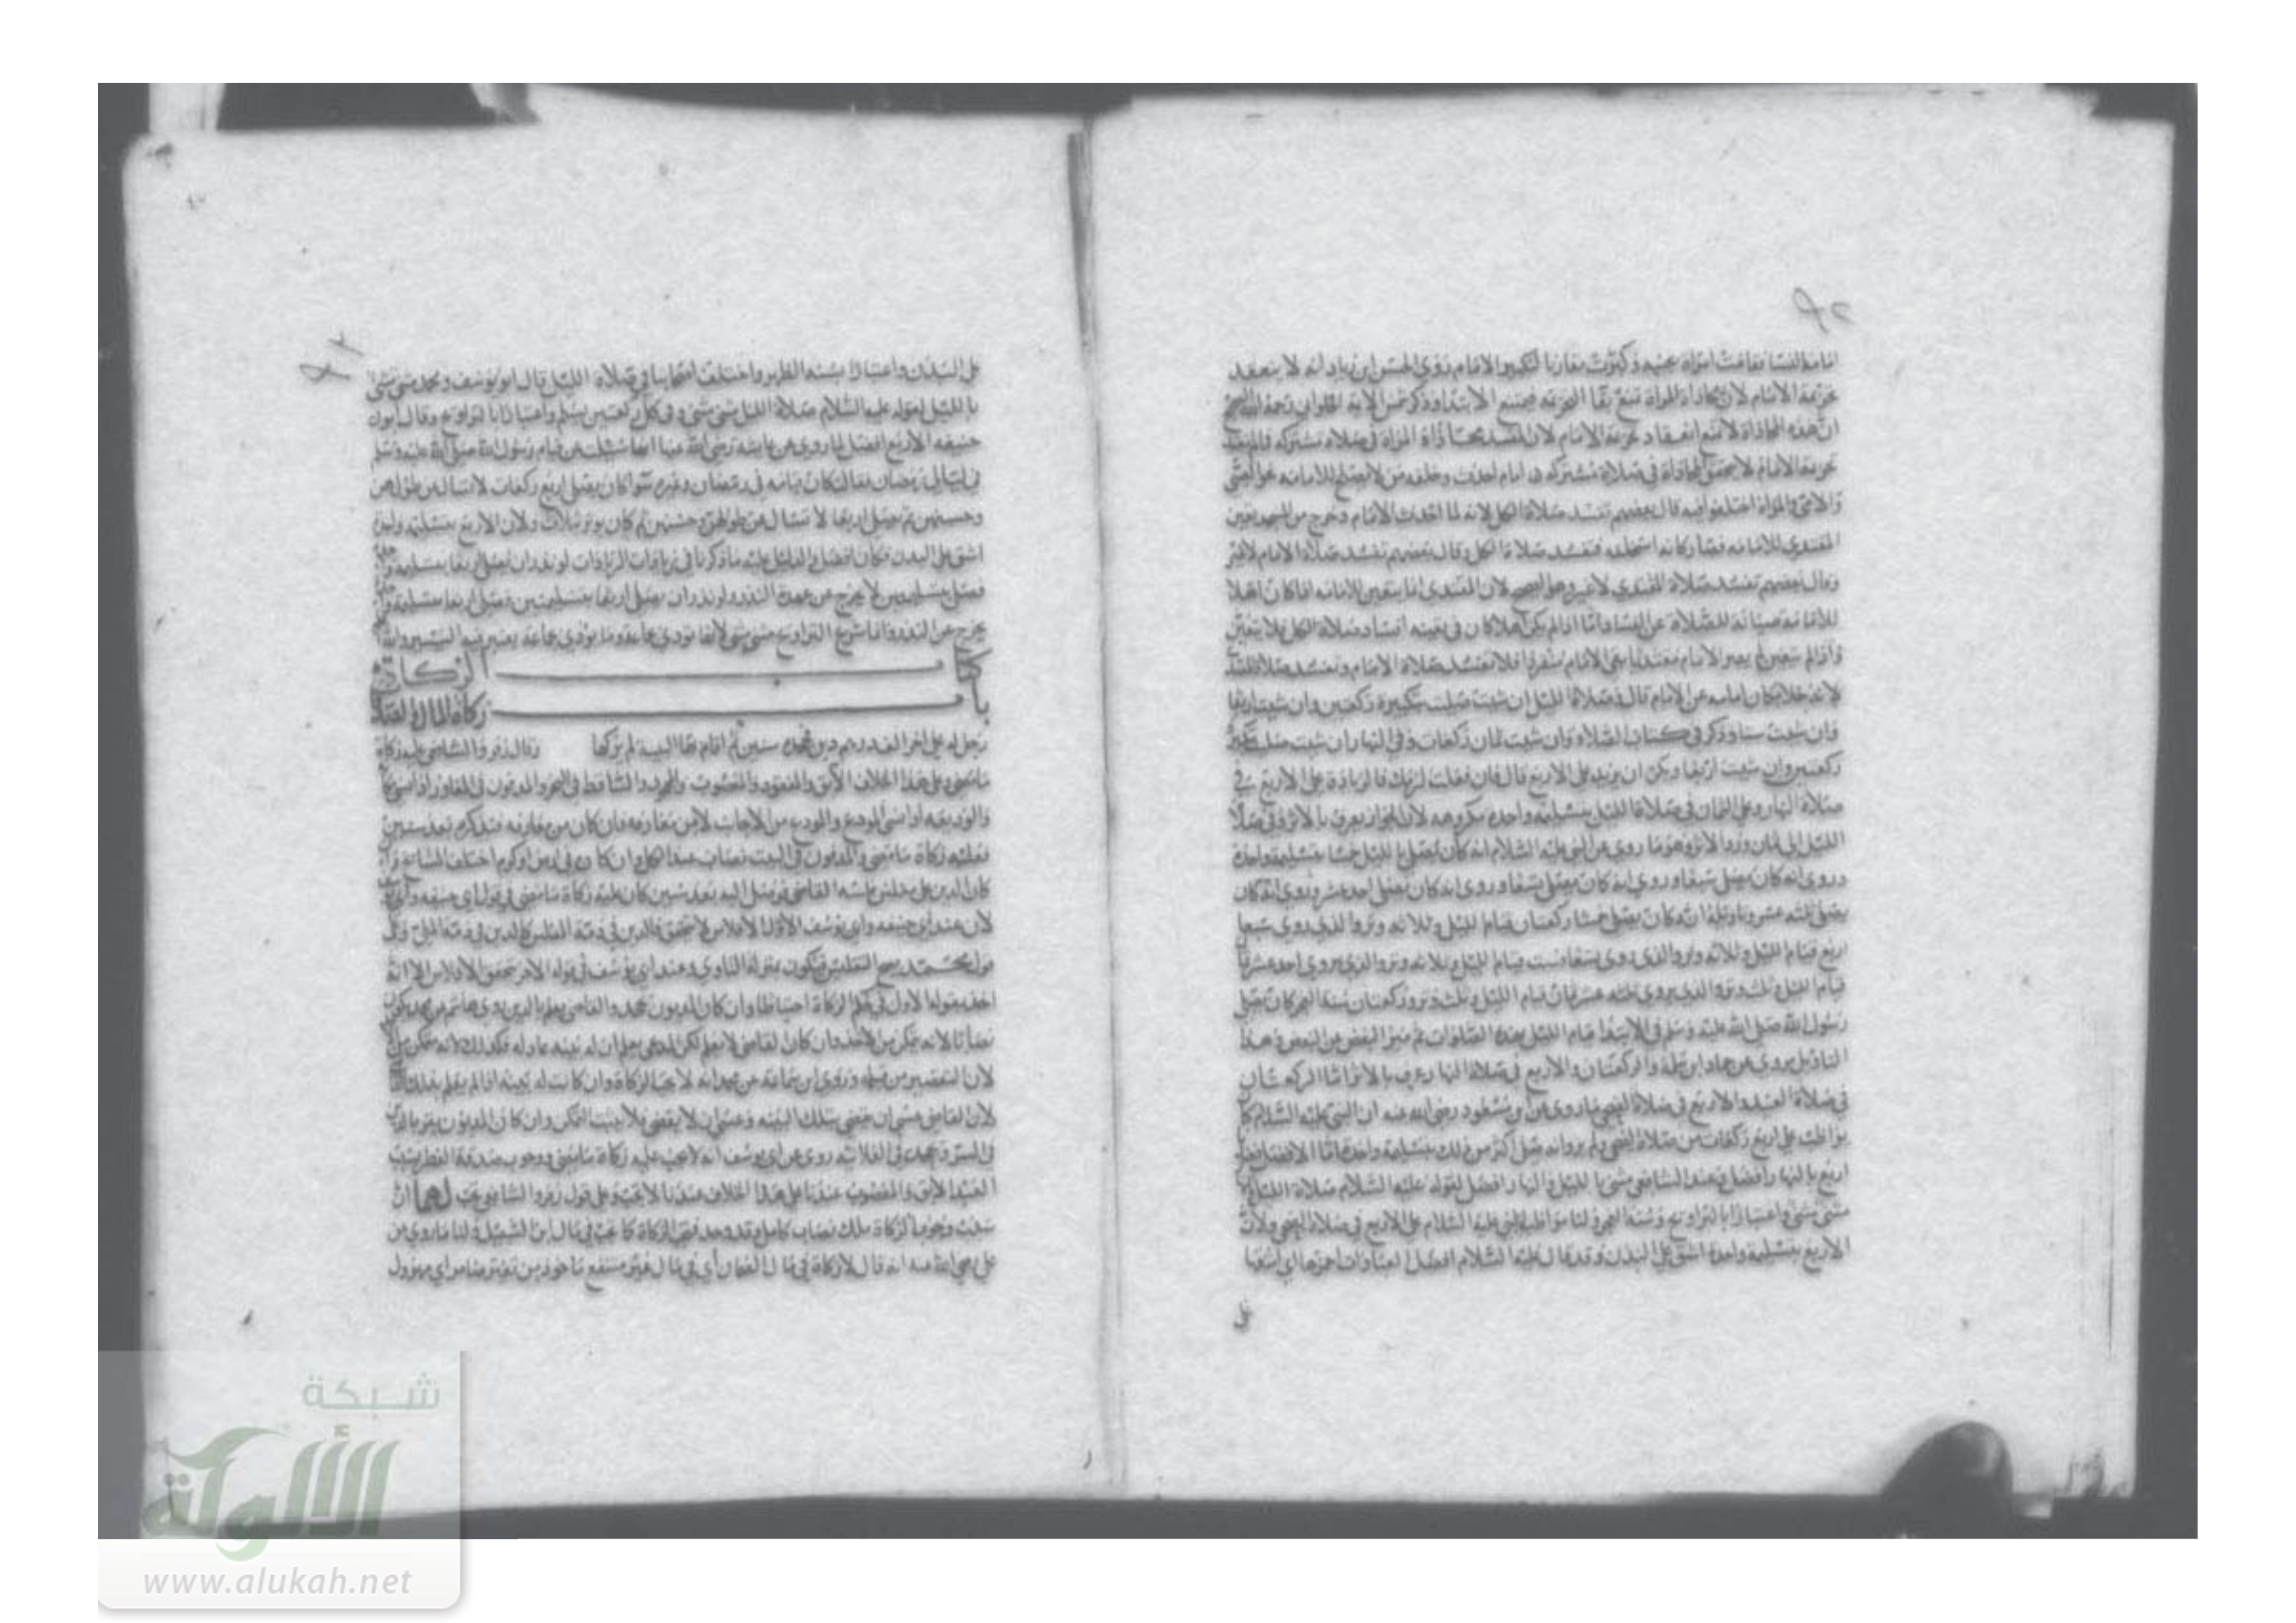 امامة النسا فقامت امراة بجنبه وكبرت مقارنا لتكبير الامام روى الحسن ابن زياد انه لا ينعقد
تحريمة الامام لان محاذاة المراة تمنع بقا التحريمة فيمنع الابتدا وذكر شمس الايمة الحلواني رحمه الله الصحيح
ان هذه المحاذاة لا تمنع انعقاد تحريمة الامام لان المفسد محاذاة المراة في صلاة مشتركة
تحريمة الامام لا يتحقق المحاذاة في صلاة مشتركة امام احدث وخلفه من لا يصلح للامامة نحو الصبي
والامي والمراة اختلفوا فيه قال بعضهم تفسد صلاة الكل لانه لما احدث الامام وخرج من المسجد تعين
المقتدي للامامة فصار كانه استخلفه فتفسد صلاة الكل وقال بعضهم تفسد صلاة الامام لا غير
وقال بعضهم تفسد صلاة المقتدي لا غير وهو الصحيح لان المقتدي انما يتعين للامامة اذا كان اهلا
للامامة صيانة للصلاة عن الفساد اما اذا لم يكن اهلا كان في تعينه افساد صلاة الكل فلا يتعين
واذا لم يتعين لم يصر الامام مقتديا بقي الامام منفردا فلا تفسد صلاة الامام وتفسد صلاة المقتدي
لانه خلا مكان امامه عن الامام قال في صلاة الليل ان شيت صليت بتكبيرة ركعتين وان شيت اربعا
وان شيت ستا وذكر في كتاب الصلاة وان شيت ثمان ركعات وفي النهار ان شيت صلت بتكبيرة
ركعتين وان شيت اربعا ويكره ان يزيد على الاربع قال فان فعلت لزمك فالزيادة على الاربع في
صلاة النهار وعلى الثمان في صلاة الليل بتسليمة واحدة مكروهة لان الجواز يعرف بالاثر وفي صلاة
الليل الى ثمان ورد الاثر وهو ما روي عن النبي عليه السلام انه كان يصلي بالليل خمسا بتسليمة واحدة
وروي انه كان يصلي سبعا وروي انه كان يصلي تسعا وروي انه كان يصلي احد عشر وروي انه كان
يصلي ثلثة عشر وتاويله انه كان يصلي خمسا ركعتان قيام الليل وثلاثة وتر والذي روي سبعا
اربع قيام الليل وثلاثة وتر والذي روي تسعا فست قيام الليل وثلاثة وتر والذي يروي احد عشر
قيام الليل وثلث وتر والذي يروي ثلثة عشر ثمان قيام الليل وثلث وتر وركعتان سنة الفجر كان يصلي
رسول الله صلى الله عليه وسلم في الابتدا قيام الليل بهذه الصلوات ثم ميز البعض عن البعض وهذا
التاويل يروى عن حماد ابن سلمة والركعتان والاربع في صلاة النهار عرف بالاثر اما الركعتان
في صلاة العيد والاربع في صلاة الضحى بما روي عن ابن مسعود رضي الله عنه ان النبي عليه السلام كان
يواظب على اربع ركعات من صلاة الضحى ولم يرو انه صلى اكثر من ذلك بتسليمة واحدة اما الافضل
اربع بالنهار افضل وعند الشافعي مثنى بالليل والنهار افضل لقوله عليه السلام صلاة الليل
مثنى مثنى واعتبارا بالتراويح وسنة الفجر ولنا مواظبة النبي عليه السلام على الاربع في صلاة الضحى ولان
الاربع بتسليمة واحدة اشق على البدن وقد قال عليه السلام افضل العبادات احمزها اي اشقها
على
على البدن واعتبارا بسنة الظهر واختلف اصحابنا في صلاة الليل قال ابو يوسف ومحمد مثنى مثنى
بالليل لقوله عليه السلام صلاة الليل مثنى مثنى وفي كل ركعتين يسلم واعتبارا بالتراويح وقال ابو
حنيفة الاربع افضل لما روي عن عايشة رضي الله عنها انها سئلت عن قيام رسول الله صلى الله عليه وسلم
في ليالي رمضان فقالت كان قيامه في رمضان وغيره سوا كان يصلي اربع ركعات لا تسال عن طولهن
وحسنهن ثم يصلي اربعا لا تسال عن طولهن وحسنهن ثم كان يوتر بثلاث ولان الاربع بتسليمة واحدة
اشق على البدن فكان افضل والدليل عليه ما ذكرنا في زيادات الزيادات لو نذر ان يصلي اربعا بتسليمة
فصلى بتسليمتين لا يخرج عن عهدة النذر ولو نذر ان يصلي اربعا بتسليمتين فصلى اربعا بتسليمة
يخرج عن النذر وانما شرع التراويح مثنى مثنى لانها تودى بجماعة وما يودى بجماعة يعتبر فيه التيسير والله
كتاب الزكاة
باب زكاة المال
رجل له على اخر الف درهم دين فجحده سنين ثم اقام بها البينة لم يزكها وقال زفر والشافعي عليه زكاة
ما مضى وعلى هذا الخلاف الآبق والمفقود والمغصوب والمجحود والساقط في البحر والمدفون في المفاوز اذا نسي
والوديعة اذا نسي المودع والمودع من الاجانب لا من معارفه فان كان من معارفه فتذكر بعد سنين
فعليه زكاة ما مضى والمدفون في البيت نصاب عند الكل وان كان في ارض او كرم اختلف المشايخ
كان الدين على مفلس فلسه القاضي فوصل اليه بعد سنين كان عليه زكاة ما مضى في قول ابي حنيفة وابي
لان عند ابي حنيفة وابي يوسف الاول الافلاس لا يتحقق فالدين في ذمة المفلس كالدين في ذمة الملي وعلى
قول محمد يصح التفليس فيكون بمنزلة التاوي وعند ابي يوسف في قوله الاخر تحقق الافلاس الا انه
اخذ بقوله الاول في حكم الزكاة احتياطا وان كان المديون يجحد والقاضي يعلم بالدين روى هشام عن محمد يكون
نصابا لانه يتمكن من الاخذ وان كان القاضي لا يعلم لكن المدعي يعلم ان له بينة عادلة فكذلك لانه متمكن من
لان التقصير من قبله وروى ابن سماعة عن محمد انه لا يجب الزكاة وان كانت له بينة اذا لم يقم
لان القاضي عسى ان يقضي بتلك البينة وعسى ان لا يقضي فلا يثبت التمكن وان كان المديون يقر
في السر ويجحد في العلانية روي عن ابي يوسف انه لا يجب عليه زكاة ما مضى ووجوب صدقة الفطر بسبب
العبد الآبق والمغصوب عندنا على هذا الخلاف عندنا لا يجب وعلى قول زفر والشافعي يجب لهما ان
سبب وجوب الزكاة ملك نصاب كامل وقد وجد فتجب الزكاة كما تجب في مال ابن السبيل ولنا ما روي عن
علي رضي الله عنه انه قال لا زكاة في مال الضمار اي في مال غير منتفع ماخوذ من بعير ضامر اي مهزول
شبكة
الألوكة
www.alukah.net